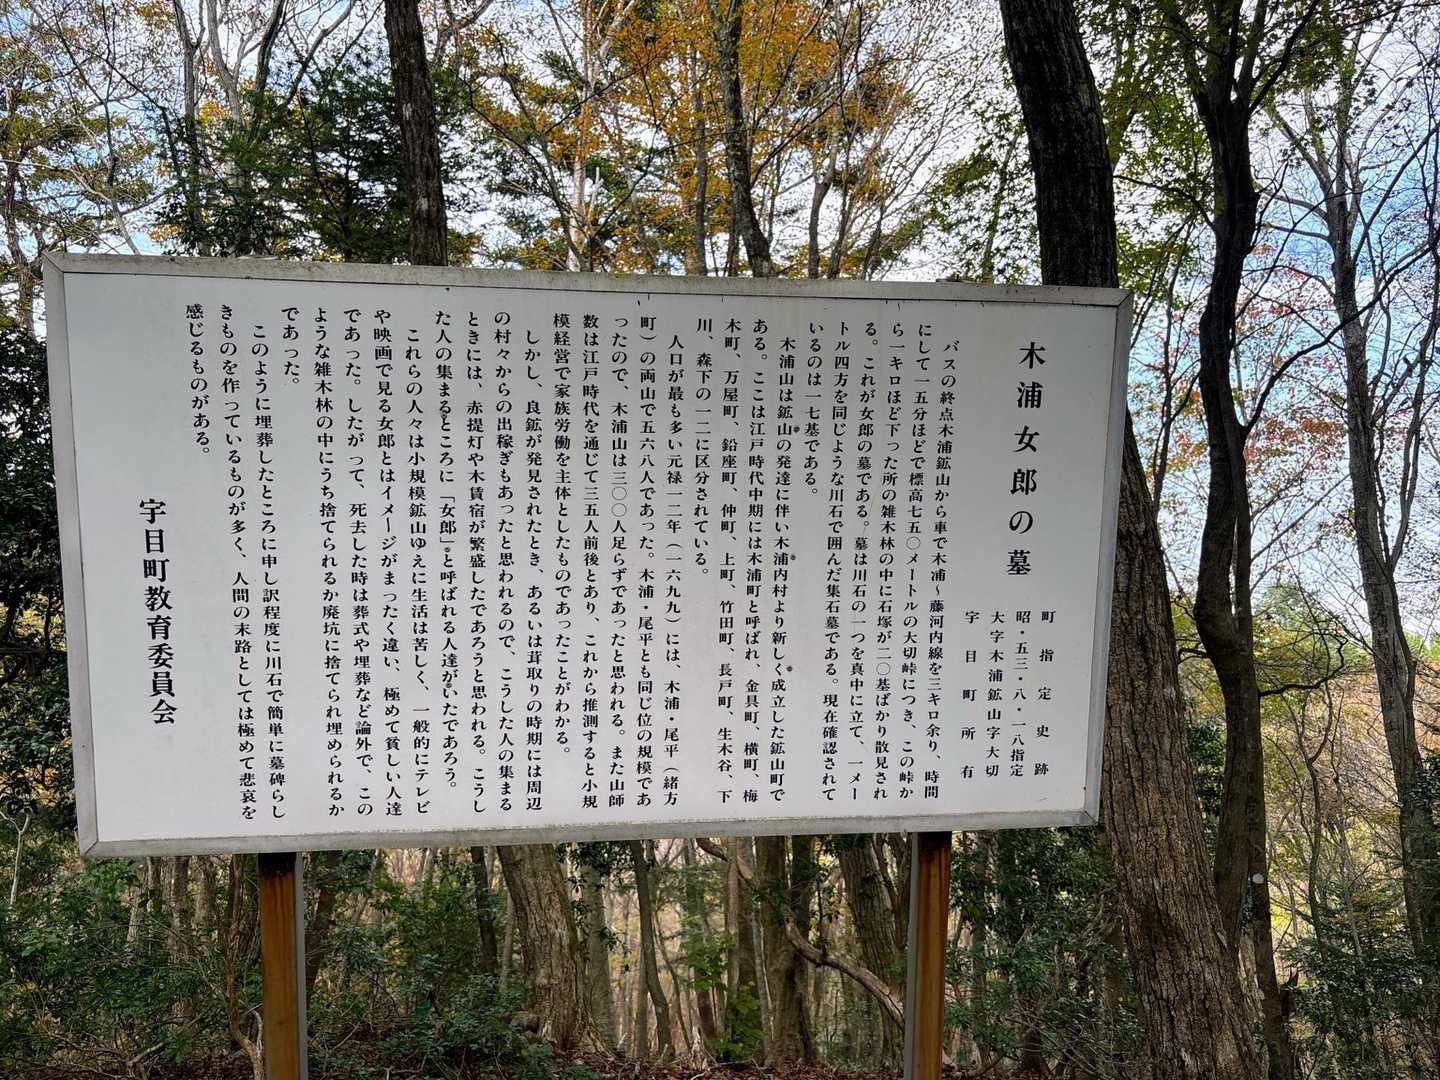 木浦女郎の墓
町指定史跡
昭・五三・八・一八指定
大字木浦鉱山字大切
宇目町所有
バスの終点木浦鉱山から車で木浦〜藤河内線を三キロ余り、時間
にして一五分ほどで標高七五〇メートルの大切峠につき、この峠か
ら一キロほど下った所の雑木林の中に石塚が二〇基ばかり散見され
る。これが女郎の墓である。墓は川石の一つを真中に立て、一メー
トル四方を同じような川石で囲んだ集石墓である。現在確認されて
いるのは一七基である。
木浦山は鉱山の発達に伴い木浦内村より新しく成立した鉱山町で
ある。ここは江戸時代中期には木浦町と呼ばれ、金具町、横町、梅
木町、万屋町、鉛座町、仲町、上町、竹田町、長戸町、生木谷、下
川、森下の一二に区分されている。
人口が最も多い元禄一二年（一六九九）には、木浦・尾平（緒方
町）の両山で五六八人であった。木浦・尾平とも同じ位の規模であ
ったので、木浦山は三〇〇人足らずであったと思われる。また山師
数は江戸時代を通じて三五人前後とあり、これから推測すると小規
模経営で家族労働を主体としたものであったことがわかる。
しかし、良鉱が発見されたとき、あるいは茸取りの時期には周辺
の村々からの出稼ぎもあったと思われるので、こうした人の集まる
ときには、赤提灯や木賃宿が繁盛したであろうと思われる。こうし
た人の集まるところに「女郎」と呼ばれる人達がいたであろう。
これらの人々は小規模鉱山ゆえに生活は苦しく、一般的にテレビ
や映画で見る女郎とはイメージがまったく違い、極めて貧しい人達
であった。したがって、死去した時は葬式や埋葬など論外で、この
ような雑木林の中にうち捨てられるか廃坑に捨てられ埋められるか
であった。
このように埋葬したところに申し訳程度に川石で簡単に墓碑らし
きものを作っているものが多く、人間の末路としては極めて悲哀を
感じるものがある。
宇目町教育委員会